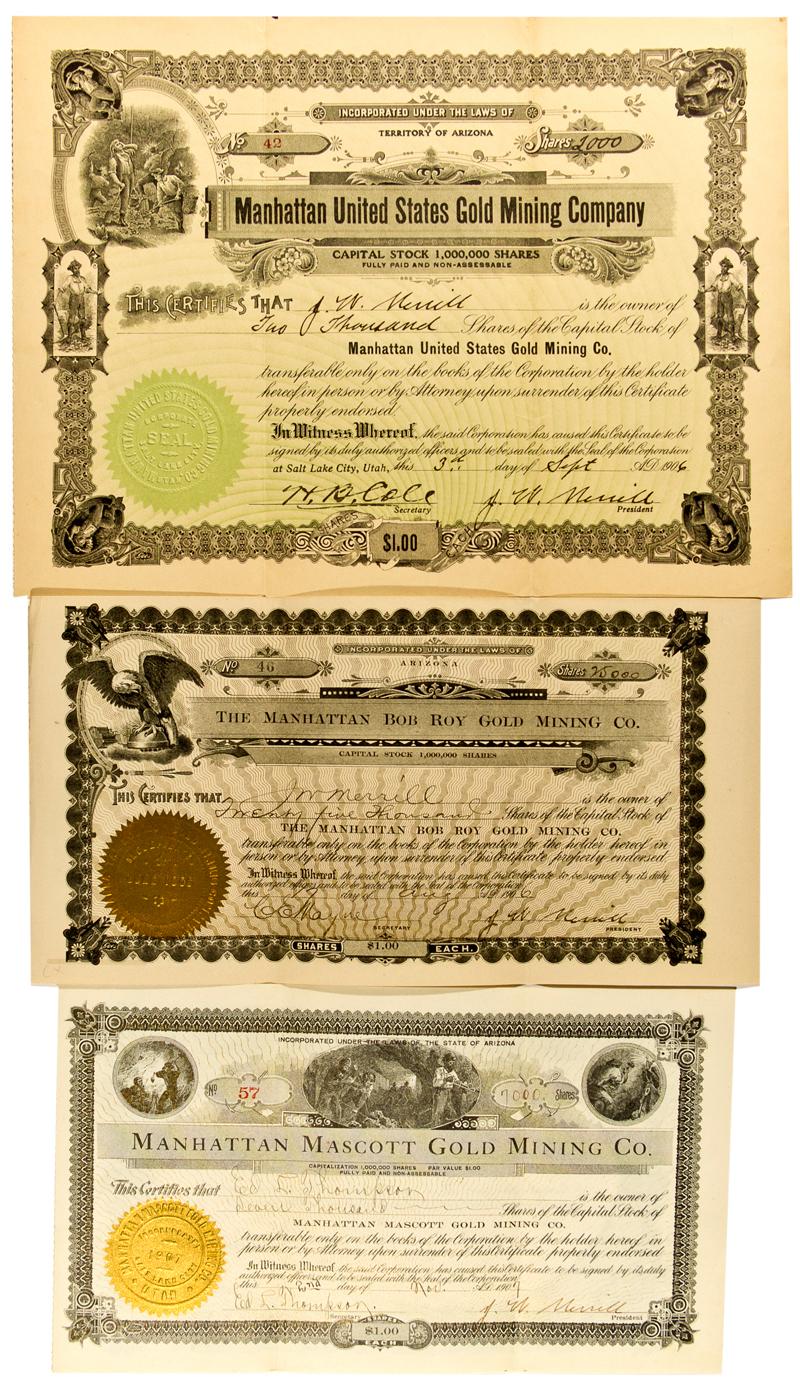 INCORPORATED UNDER THE LAWS OF
TERRITORY OF ARIZONA
No 42 Shares 2000
Manhattan United States Gold Mining Company
CAPITAL STOCK 1,000,000 SHARES
FULLY PAID AND NON-ASSESSABLE
THIS CERTIFIES THAT J. W. Merrill is the owner of
Two Thousand Shares of the Capital Stock of
Manhattan United States Gold Mining Co.
transferable only on the books of the Corporation by the holder
hereof in person or by Attorney upon surrender of this Certificate
properly endorsed.
In Witness Whereof, the said Corporation has caused this Certificate to be
signed by its duly authorized officers and to be sealed with the Seal of the Corporation
at Salt Lake City, Utah, this 3rd day of Sept A.D. 1906
H. B. Cole J. W. Merrill
Secretary President
SHARES
$1.00
MANHATTAN UNITED STATES GOLD MINING
CORPORATE
SEAL
INCORPORATED UNDER THE LAWS OF
ARIZONA
No 46 Shares 25000
THE MANHATTAN BOB ROY GOLD MINING CO.
CAPITAL STOCK 1,000,000 SHARES
THIS CERTIFIES THAT J W Merrill is the owner of
Twenty five Thousand Shares of the Capital Stock of
THE MANHATTAN BOB ROY GOLD MINING CO.
transferable only on the books of the Corporation by the holder hereof in
person or by Attorney, upon surrender of this Certificate properly endorsed.
In Witness Whereof, the said Corporation has caused this Certificate to be signed by its duly
authorized officers and to be sealed with the Seal of the Corporation
this day of Aug A.D. 1906
C C Mayne J. W. Merrill
SECRETARY PRESIDENT
SHARES $1.00 EACH.
INCORPORATED UNDER THE LAWS OF THE STATE OF ARIZONA
No 57 7000 Shares
MANHATTAN MASCOTT GOLD MINING CO.
CAPITALIZATION 1,000,000 SHARES PAR VALUE $1.00
FULLY PAID AND NON-ASSESSABLE
This Certifies that Ed L. Thompson is the owner of
Seven Thousand Shares of the Capital Stock of
MANHATTAN MASCOTT GOLD MINING CO.
transferable only on the books of the Corporation by the holder hereof in
person or by Attorney upon surrender of this Certificate properly endorsed
In Witness Whereof, the said Corporation has caused this Certificate to be signed by its duly
authorized officers and to be sealed with the Seal of the Corporation
this 2nd day of Nov. A.D. 1907
Ed L. Thompson. J. W. Merrill
Secretary President
SHARES
$1.00
EACH
MANHATTAN MASCOTT GOLD MINING CO.
INCORPORATED
1907
SALT LAKE CITY
UTAH